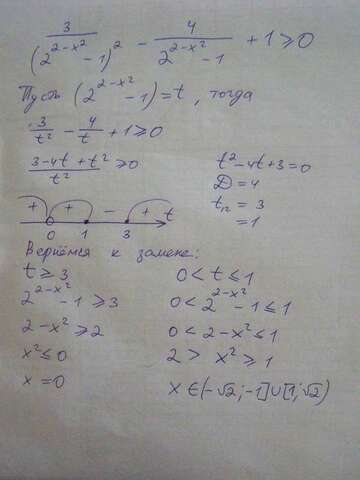 3/(2^(2-x²) - 1)² - 4/(2^(2-x²) - 1) + 1 ≥ 0
Пусть (2^(2-x²) - 1) = t, тогда
3/t² - 4/t + 1 ≥ 0
(3-4t+t²)/t² ≥ 0
t²-4t+3=0
D=4
t₁₂=3
=1
+ + - + t
0 1 3
Вернёмся к замене:
t ≥ 3
0 < t ≤ 1
2^(2-x²) - 1 ≥ 3
0 < 2^(2-x²) - 1 ≤ 1
2-x² ≥ 2
0 < 2-x² ≤ 1
x² ≤ 0
2 > x² ≥ 1
x = 0
x ∈ (-√2; -1] ∪ [1; √2)